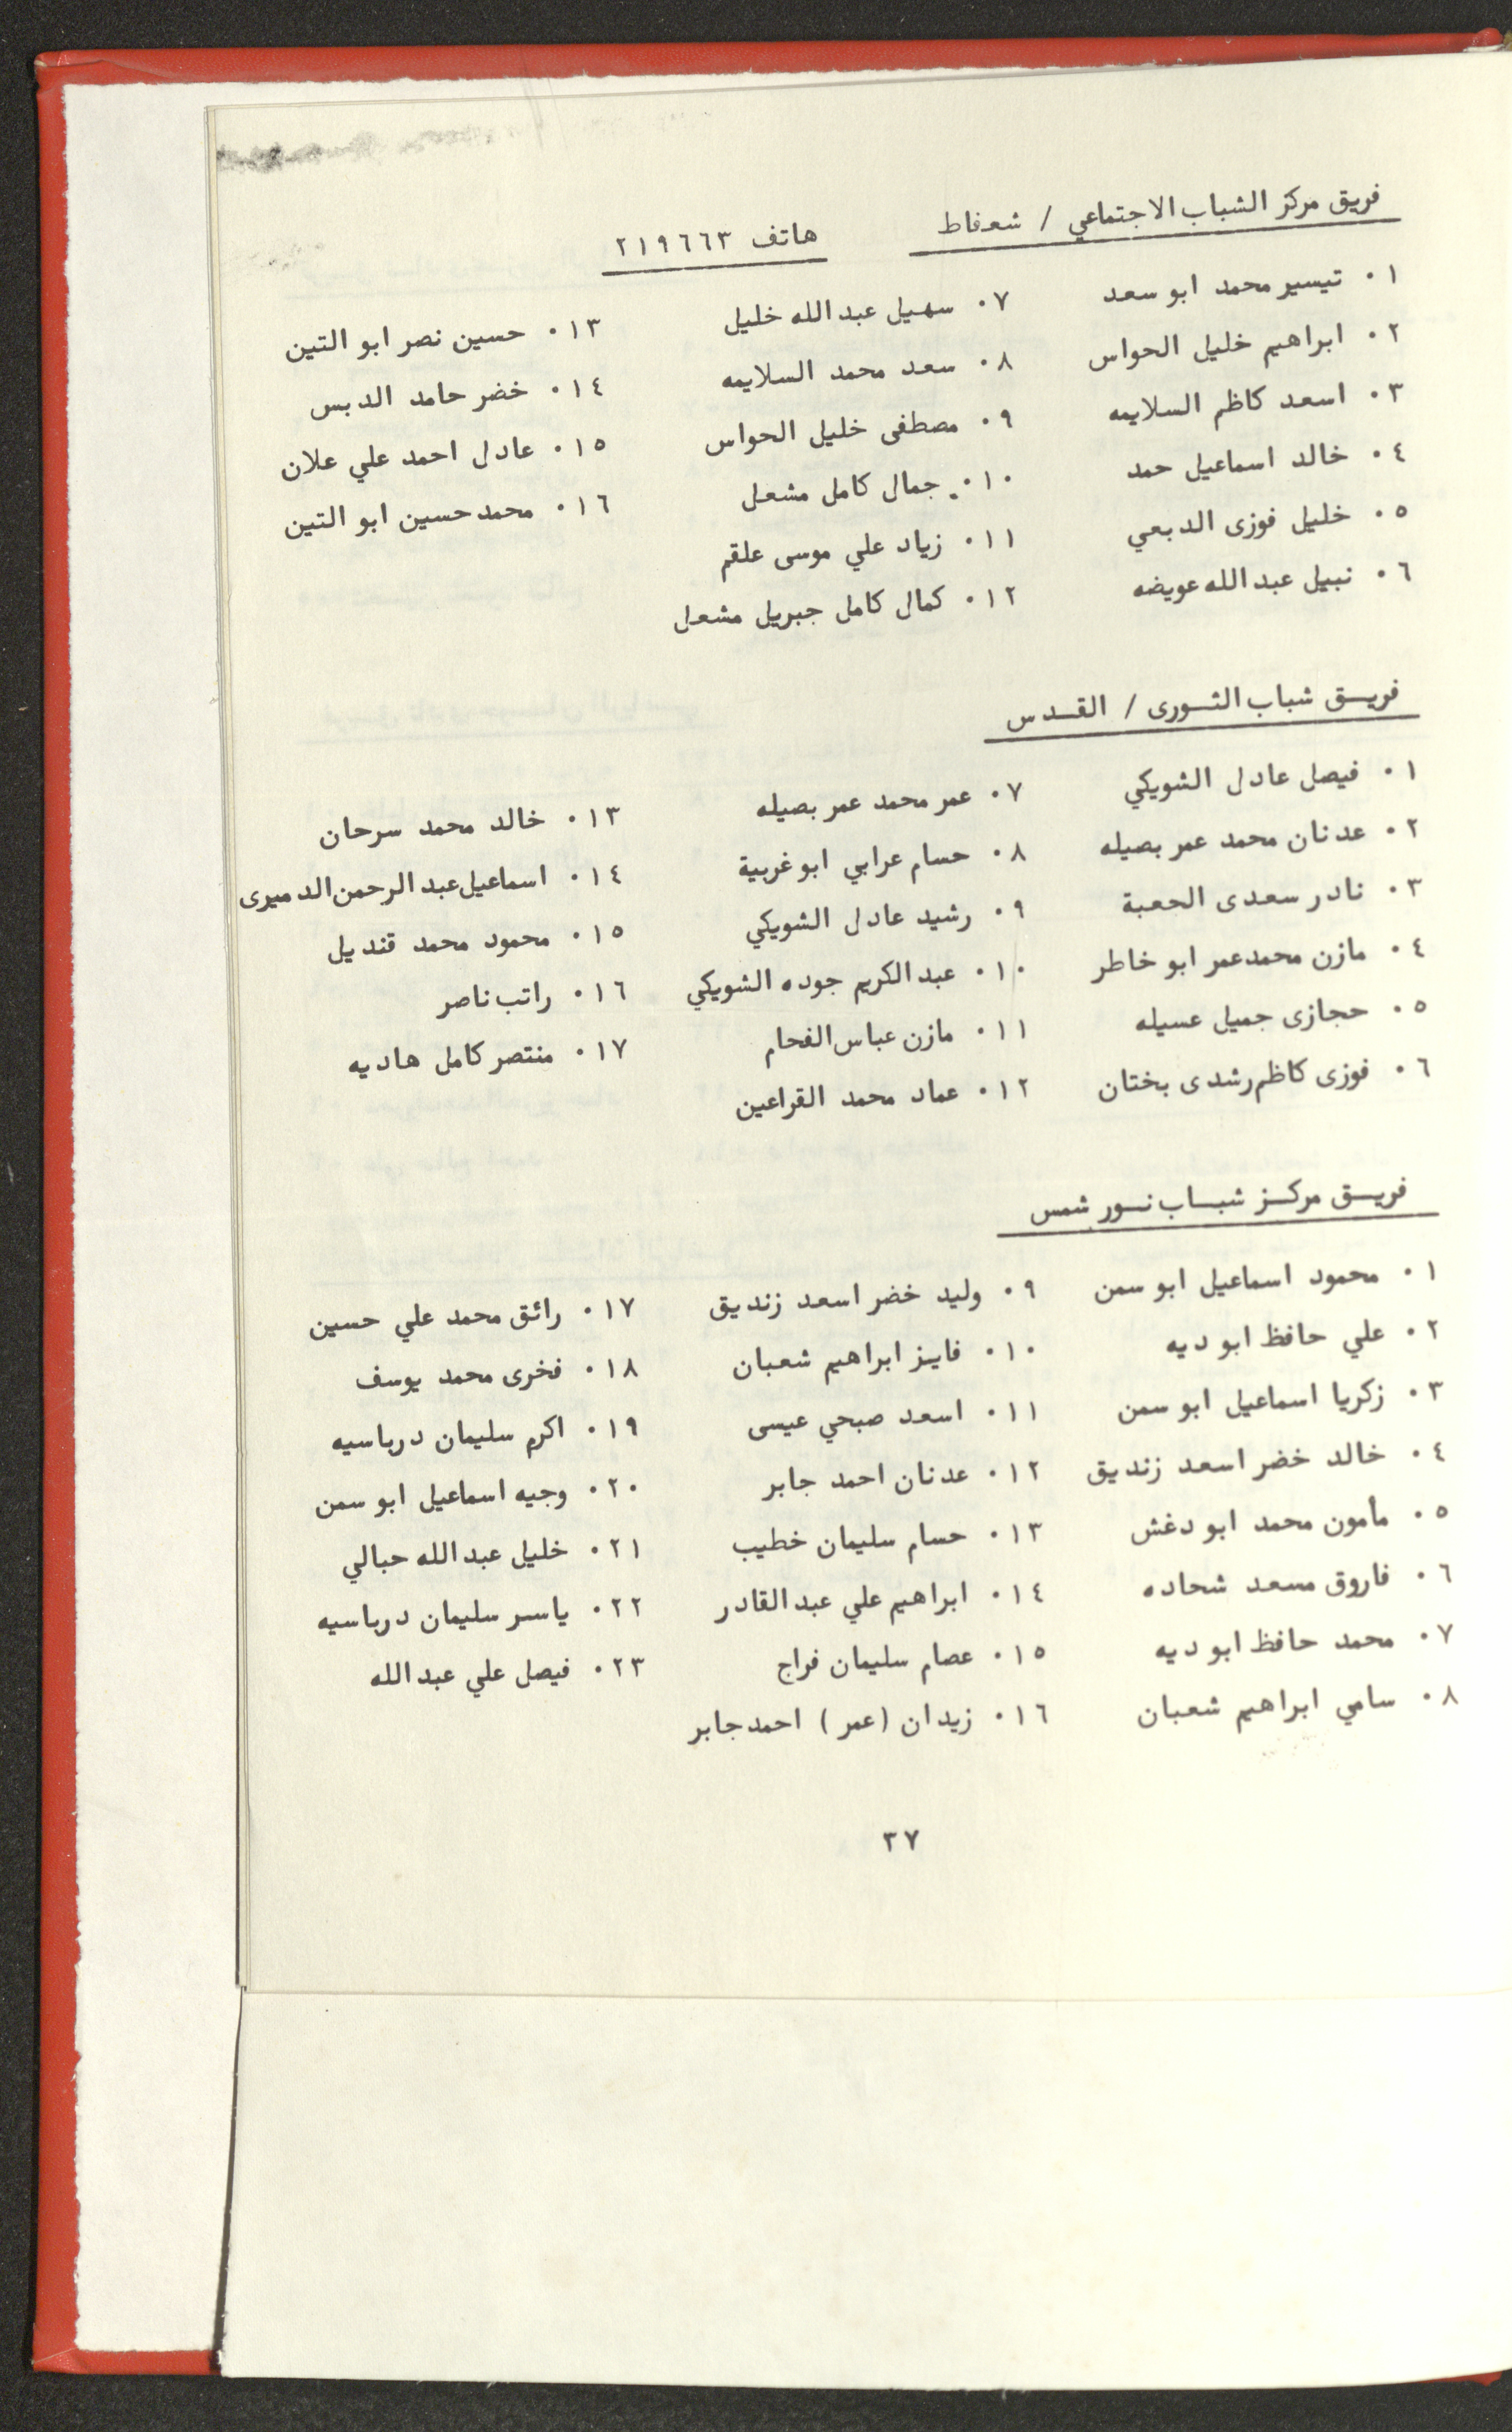 فريق مركز الشباب الاجتماعي / شعفاط
هاتف ٢١٩٦٦٣
١٠ تيسير محمد ابو سعد
٢٠ ابراهيم خليل الحواس
٣٠ اسعد كاظم السلايمه
٤٠ خالد اسماعيل حمد
٥٠ خليل فوزى الدبعي
٦٠ نبيل عبد الله عويضه
٧٠ سهيل عبد الله خليل
٨٠ سعد محمد السلايمه
٩٠ مصطفى خليل الحواس
١٠٠ جمال كامل مشعل
١١٠ زياد علي موسى علقم
١٢٠ كمال كامل جبريل مشعل
١٣٠ حسين نصر ابو التين
١٤٠ خضر حامد الدبس
١٥٠ عادل احمد علي علان
١٦٠ محمد حسين ابو التين
فريـق شباب الثـورى / القـدس
١٠ فيصل عادل الشويكي
٢٠ عدنان محمد عمر بصيله
٣٠ نادر سعدى الحعبة
٤٠ مازن محمد عمر ابو خاطر
٥٠ حجازى جميل عسيله
٦٠ فوزى كاظم رشدى بختان
٧٠ عمر محمد عمر بصيله
٨٠ حسام عرابي ابو غربية
٩٠ رشيد عادل الشويكي
١٠٠ عبد الكريم جوده الشويكي
١١٠ مازن عباس الفحام
١٢٠ عماد محمد القراعين
١٣٠ خالد محمد سرحان
١٤٠ اسماعيل عبد الرحمن الدميرى
١٥٠ محمود محمد قنديل
١٦٠ راتب ناصر
١٧٠ منتصر كامل هاديه
فريـق مركـز شبـاب نـور شمس
١٠ محمود اسماعيل ابو سمن
٢٠ علي حافظ ابو ديه
٣٠ زكريا اسماعيل ابو سمن
٤٠ خالد خضر اسعد زنديق
٥٠ مأمون محمد ابو دغش
٦٠ فاروق مسعد شحاده
٧٠ محمد حافظ ابو ديه
٨٠ سامي ابراهيم شعبان
٩٠ وليد خضر اسعد زنديق
١٠٠ فايز ابراهيم شعبان
١١٠ اسعد صبحي عيسى
١٢٠ عدنان احمد جابر
١٣٠ حسام سليمان خطيب
١٤٠ ابراهيم علي عبد القادر
١٥٠ عصام سليمان فراج
١٦٠ زيدان (عمر) احمد جابر
١٧٠ رائق محمد علي حسين
١٨٠ فخرى محمد يوسف
١٩٠ اكرم سليمان درباسيه
٢٠٠ وجيه اسماعيل ابو سمن
٢١٠ خليل عبد الله حبالي
٢٢٠ ياسر سليمان درباسيه
٢٣٠ فيصل علي عبد الله
٣٧